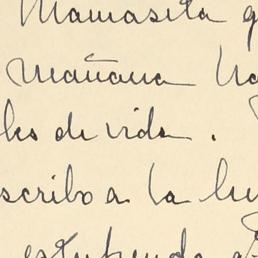 Mamasita g
mañana ha
les de vida.
scribo a la lu
estupendo a